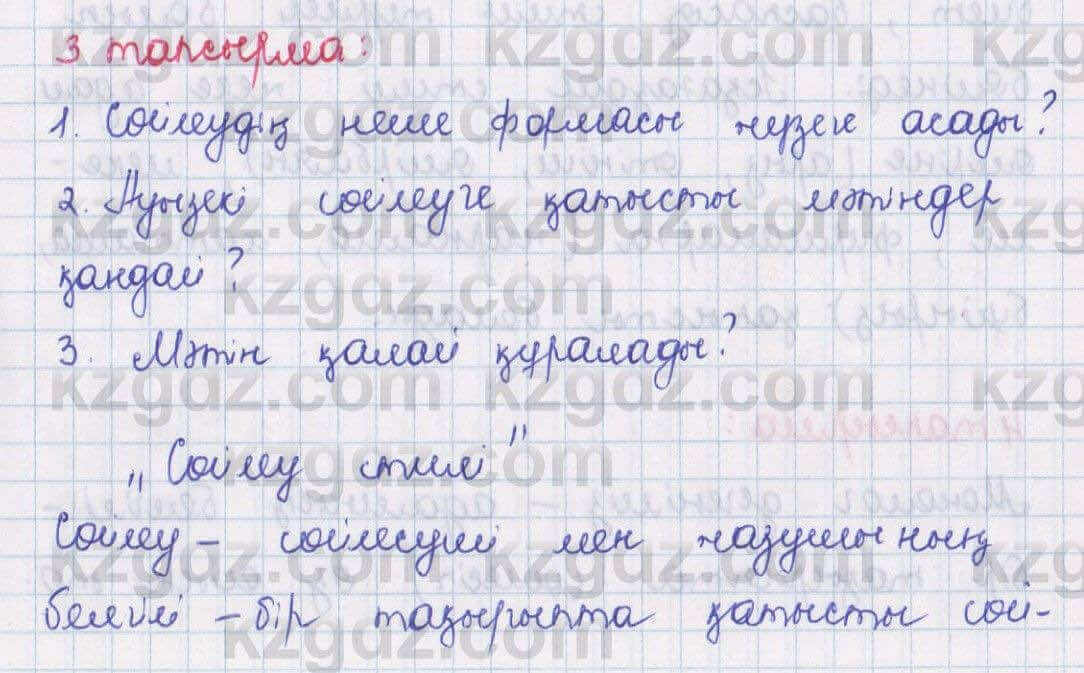 3 тапсырма:
1. Сөйлеудің неше формасы жүзеге асады?
2. Ауызекі сөйлеуге қатысты мәтіндер
қандай?
3. Мәтін қалай құралады?
„Сөйлеу стилі"
Сөйлеу – сөйлеуші мен жазушының
белгілі – бір тақырыпта қатысты сөй-
kzgdz.com